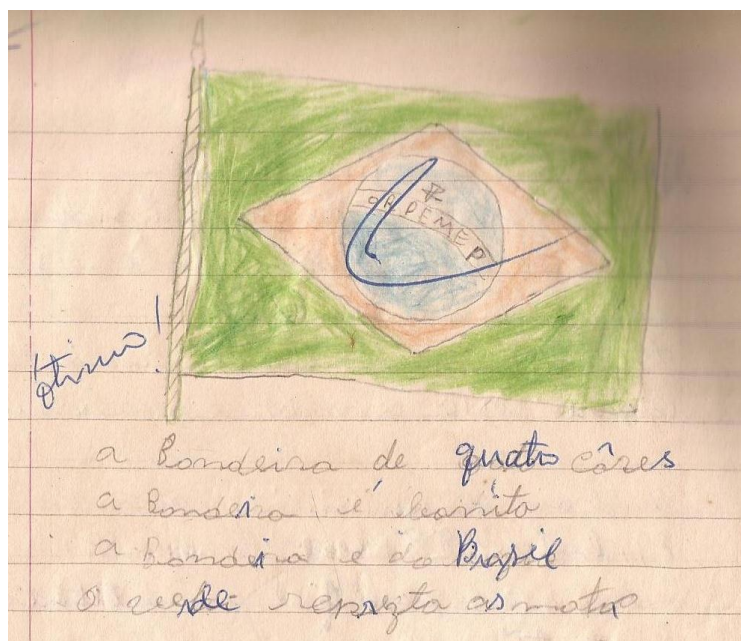 ORDEMEP
ótimo!
a bandeira de quatro côres
a bandeira é bonita
a bandeira é do Brasil
o verde reprezta as mata